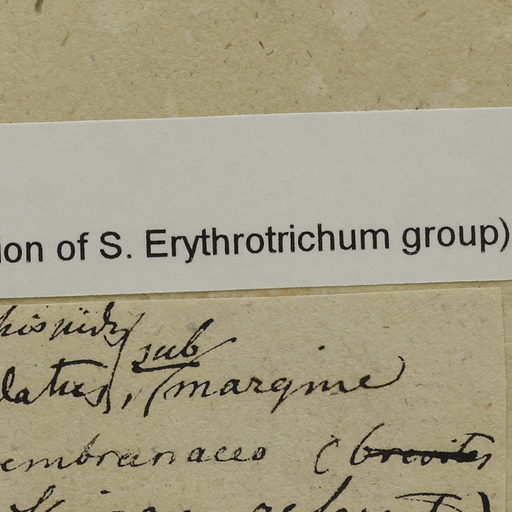 ion of S. Erythrotrichum group)
hispidy sub
latus, (margine
embranaceo (brevites